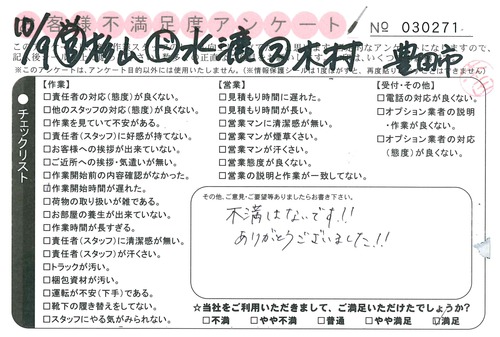 お客様不満足度アンケート
No 030271
10/9 営 杉山 上 水漉 2 木村 豊田市
チェックリスト
【作業】
□責任者の対応(態度)が良くない。
□他のスタッフの対応(態度)が良くない。
□作業を見ていて不安がある。
□責任者(スタッフ)に好感が持てない。
□お客様への挨拶が出来ていない。
□ご近所への挨拶・気遣いが無い。
□作業開始前の内容確認がなかった。
□作業開始時間が遅れた。
□荷物の取り扱いが雑である。
□お部屋の養生が出来ていない。
□作業時間が長すぎる。
□責任者(スタッフ)に清潔感が無い。
□責任者(スタッフ)が汗くさい。
□トラックが汚い。
□梱包資材が汚い。
□運転が不安(下手)である。
□靴下の履き替えをしてない。
□スタッフにやる気がみられない。
【営業】
□見積もり時間に遅れた。
□見積もり時間が長い。
□営業マンに清潔感が無い。
□営業マンが煙草くさい。
□営業マンが汗くさい。
□営業態度が良くない。
□営業の説明と作業が一致してない。
【受付・その他】
□電話の対応が良くない。
□オプション業者の説明・作業が良くない。
□オプション業者の対応(態度)が良くない。
その他、ご意見・ご要望等ありましたらお書き下さい。
不満はないです!!
ありがとうございました!!
☆当社をご利用いただきまして、ご満足いただけたでしょうか?
□不満 □やや不満 □普通 □やや満足 ☑満足